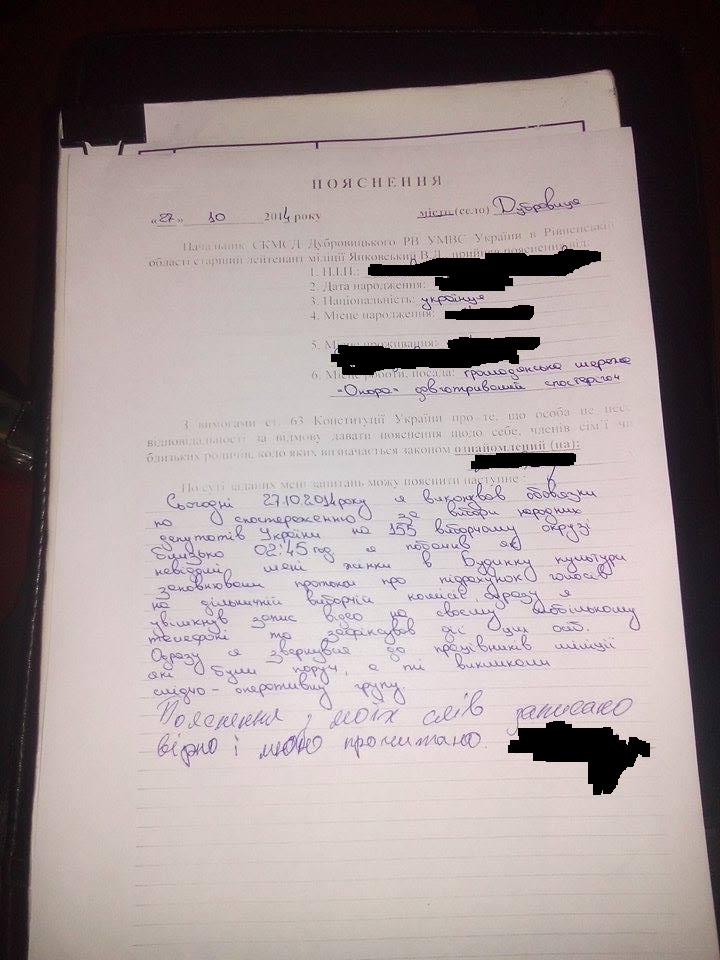 ПОЯСНЕННЯ
«27» 10 2014 року місто (село) Дубровиця
Начальник СКМСД Дубровицького РВ УМВС України в Рівненській
області старший лейтенант міліції Янковський В.Л., прийняв пояснення від:
1. П.І.П.:
2. Дата народження:
3. Національність: українця
4. Місце народження:
5. Місце проживання:
6. Місце роботи, посада: громадянська мережа
"Опора" довготривалий спостерігач
З вимогами ст. 63 Конституції України про те, що особа не несе
відповідальності за відмову давати пояснення щодо себе, членів сім'ї чи
близьких родичів, коло яких визначається законом ознайомлений (на):
По суті заданих мені запитань можу пояснити наступне:
Сьогодні 27.10.2014 року я виконував обовязки
по спостереженню за вибори народних
депутатів України на 155 виборчому окрузі
близько 02:45 год я побачив як
невідомі мені жінки в Будинку культури
заповнювали протокол про підрахунок голосів
на дільничній виборчій комісії. Одразу я
увімкнув запис відео на своєму мобільному
телефоні та зафіксував дії цих осіб.
Одразу я звернувся до працівників міліції
які були поруч, а ті викликали
слідчо-оперативну групу.
Пояснення з моїх слів записано
вірно і мною прочитано.